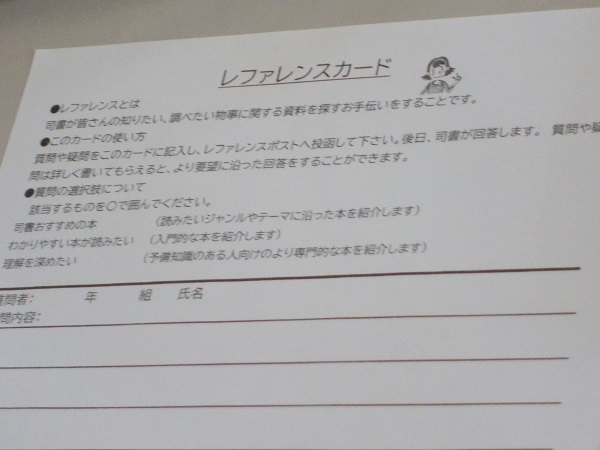 レファレンスカード
●レファレンスとは
司書が皆さんの知りたい、調べたい物事に関する資料を探すお手伝いをすることです。
●このカードの使い方
質問や疑問をこのカードに記入し、レファレンスポストへ投函して下さい。後日、司書が回答します。 質問や疑
問は詳しく書いてもらえると、より要望に沿った回答をすることができます。
●質問の選択肢について
該当するものを○で囲んでください。
司書おすすめの本 (読みたいジャンルやテーマに沿った本を紹介します)
わかりやすい本が読みたい (入門的な本を紹介します)
理解を深めたい (予備知識のある人向けのより専門的な本を紹介します)
質問者: 年 組 氏名
問内容: